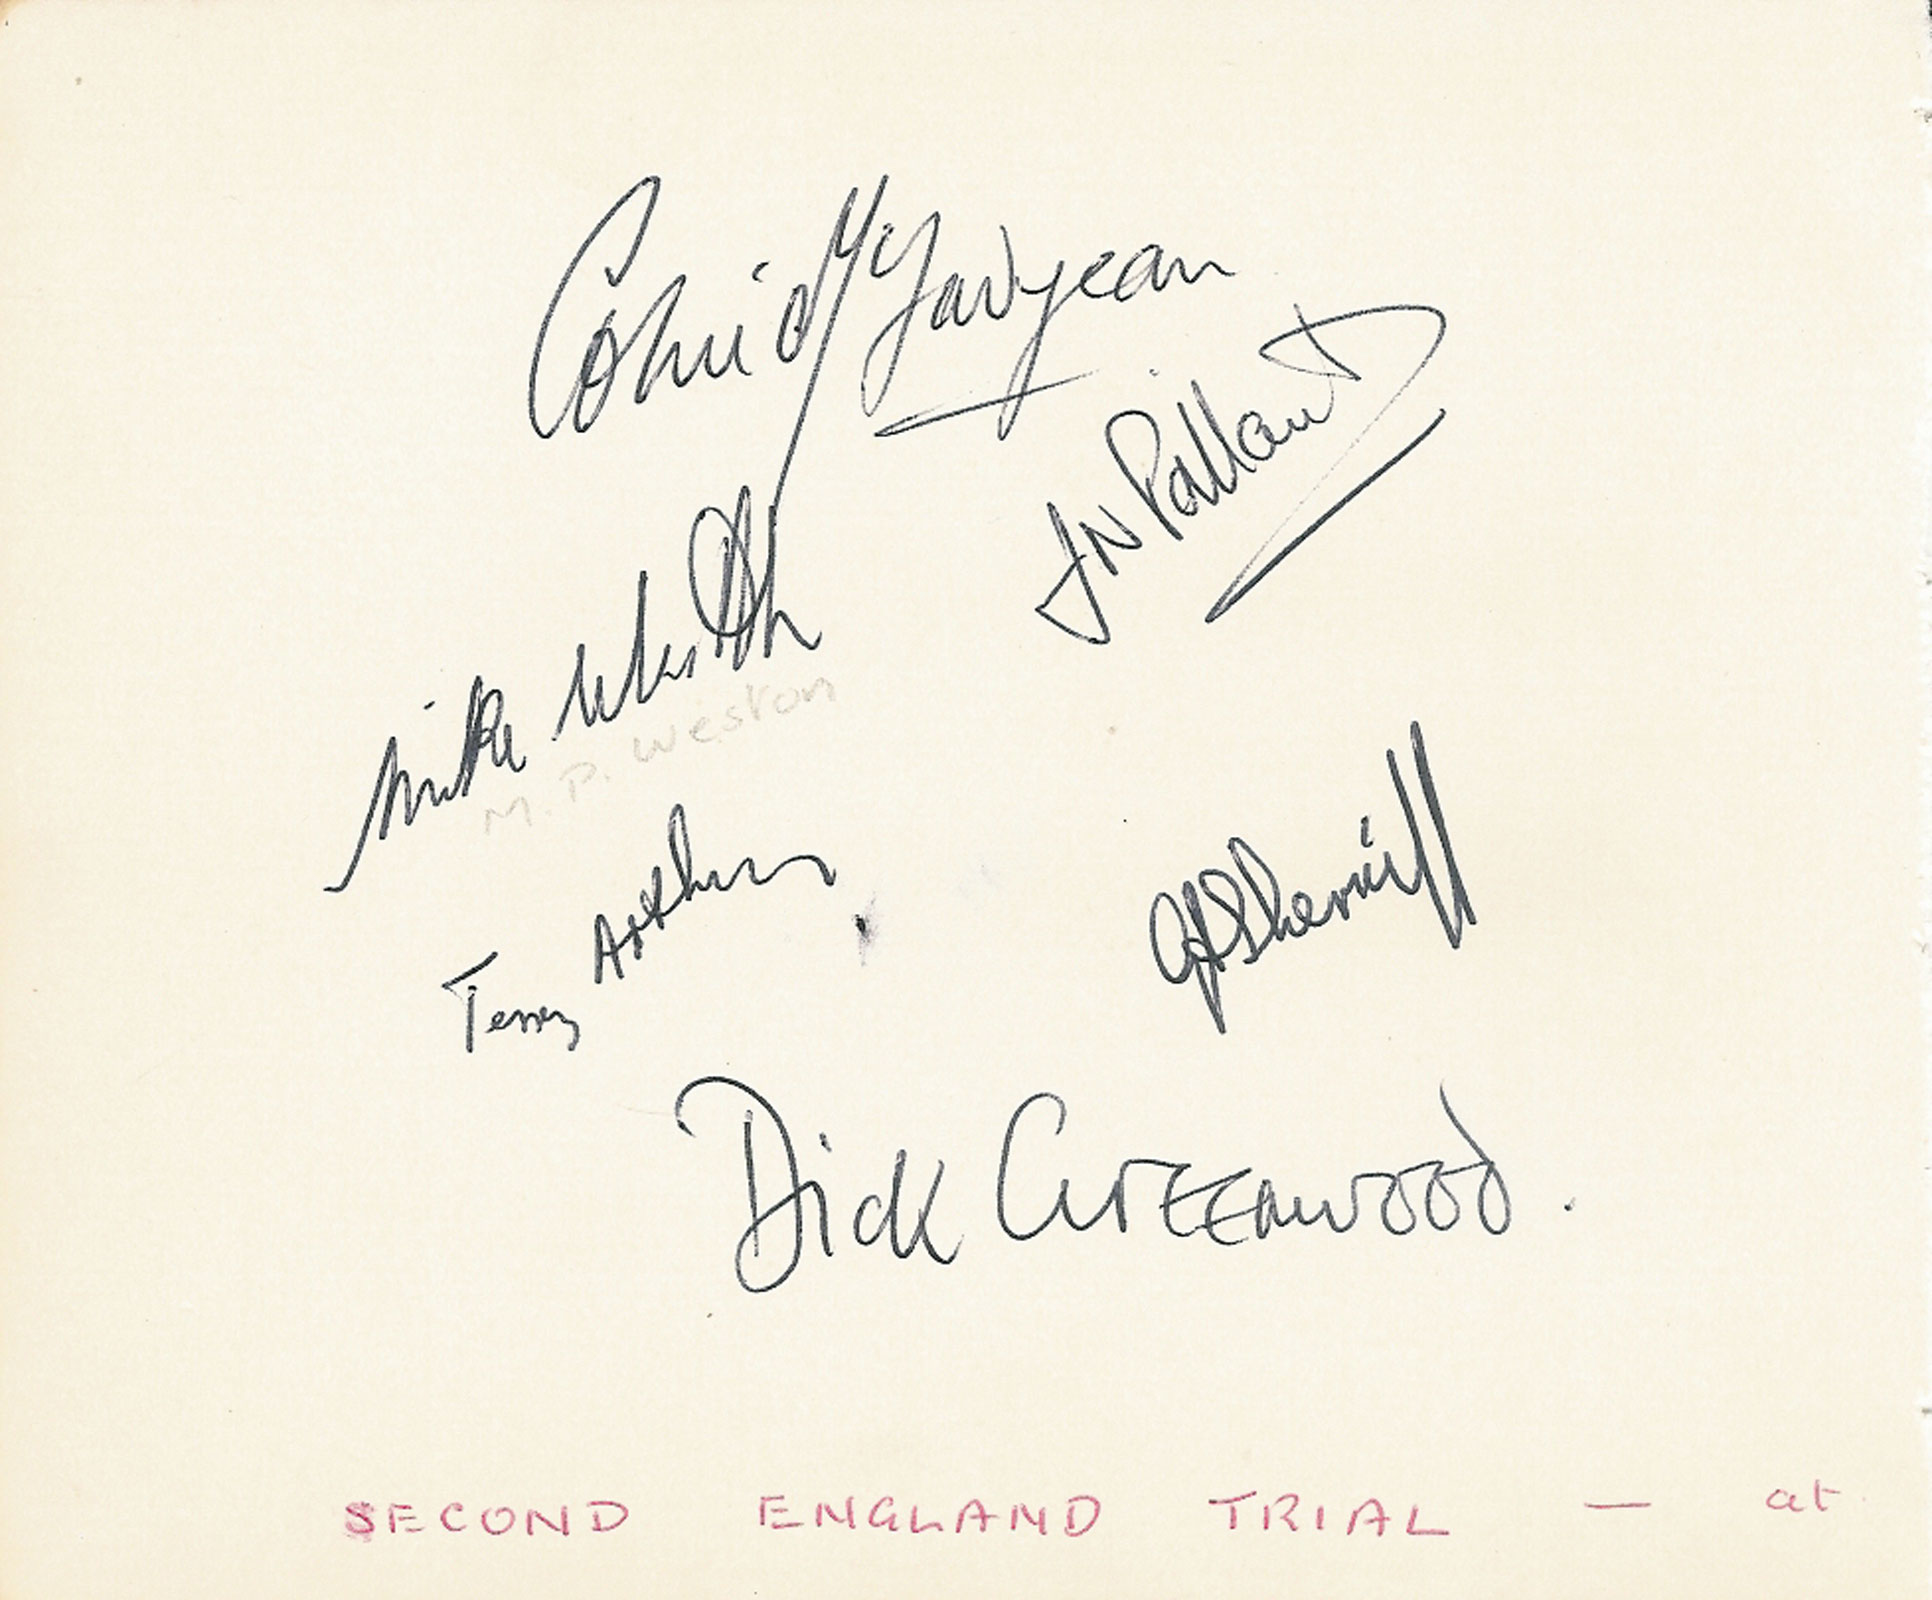 Colin McFadyean
J N Pallant
Mike Weston
M. P. Weston
Terry Arthur
G A Sherriff
Dick Greenwood.
SECOND ENGLAND TRIAL — at